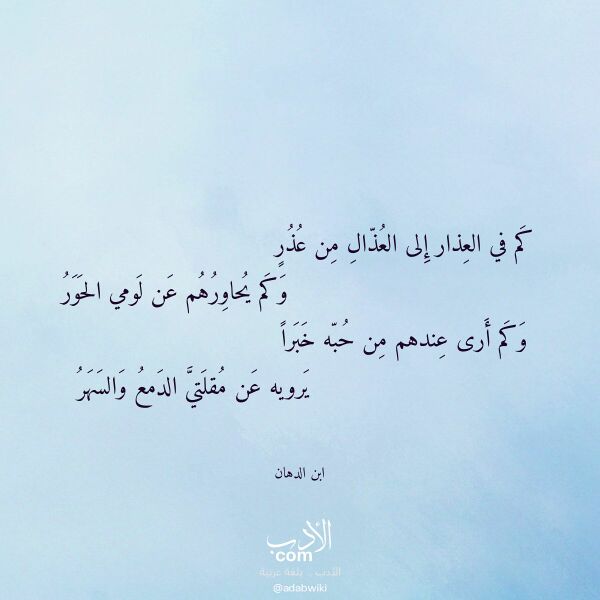 كَم في العِذار إِلى العُذّالِ مِن عُذُرٍ
وَكَم يُحاوِرُهُم عَن لَومي الحَوَرُ
وَكَم أَرى عِندهم مِن حُبّه خَبَراً
يَرويه عَن مُقلَتيَّ الدَمعُ وَالسَهَرُ
ابن الدهان
الأدب
com
الأدب .. بلغة عربية
@adabwiki